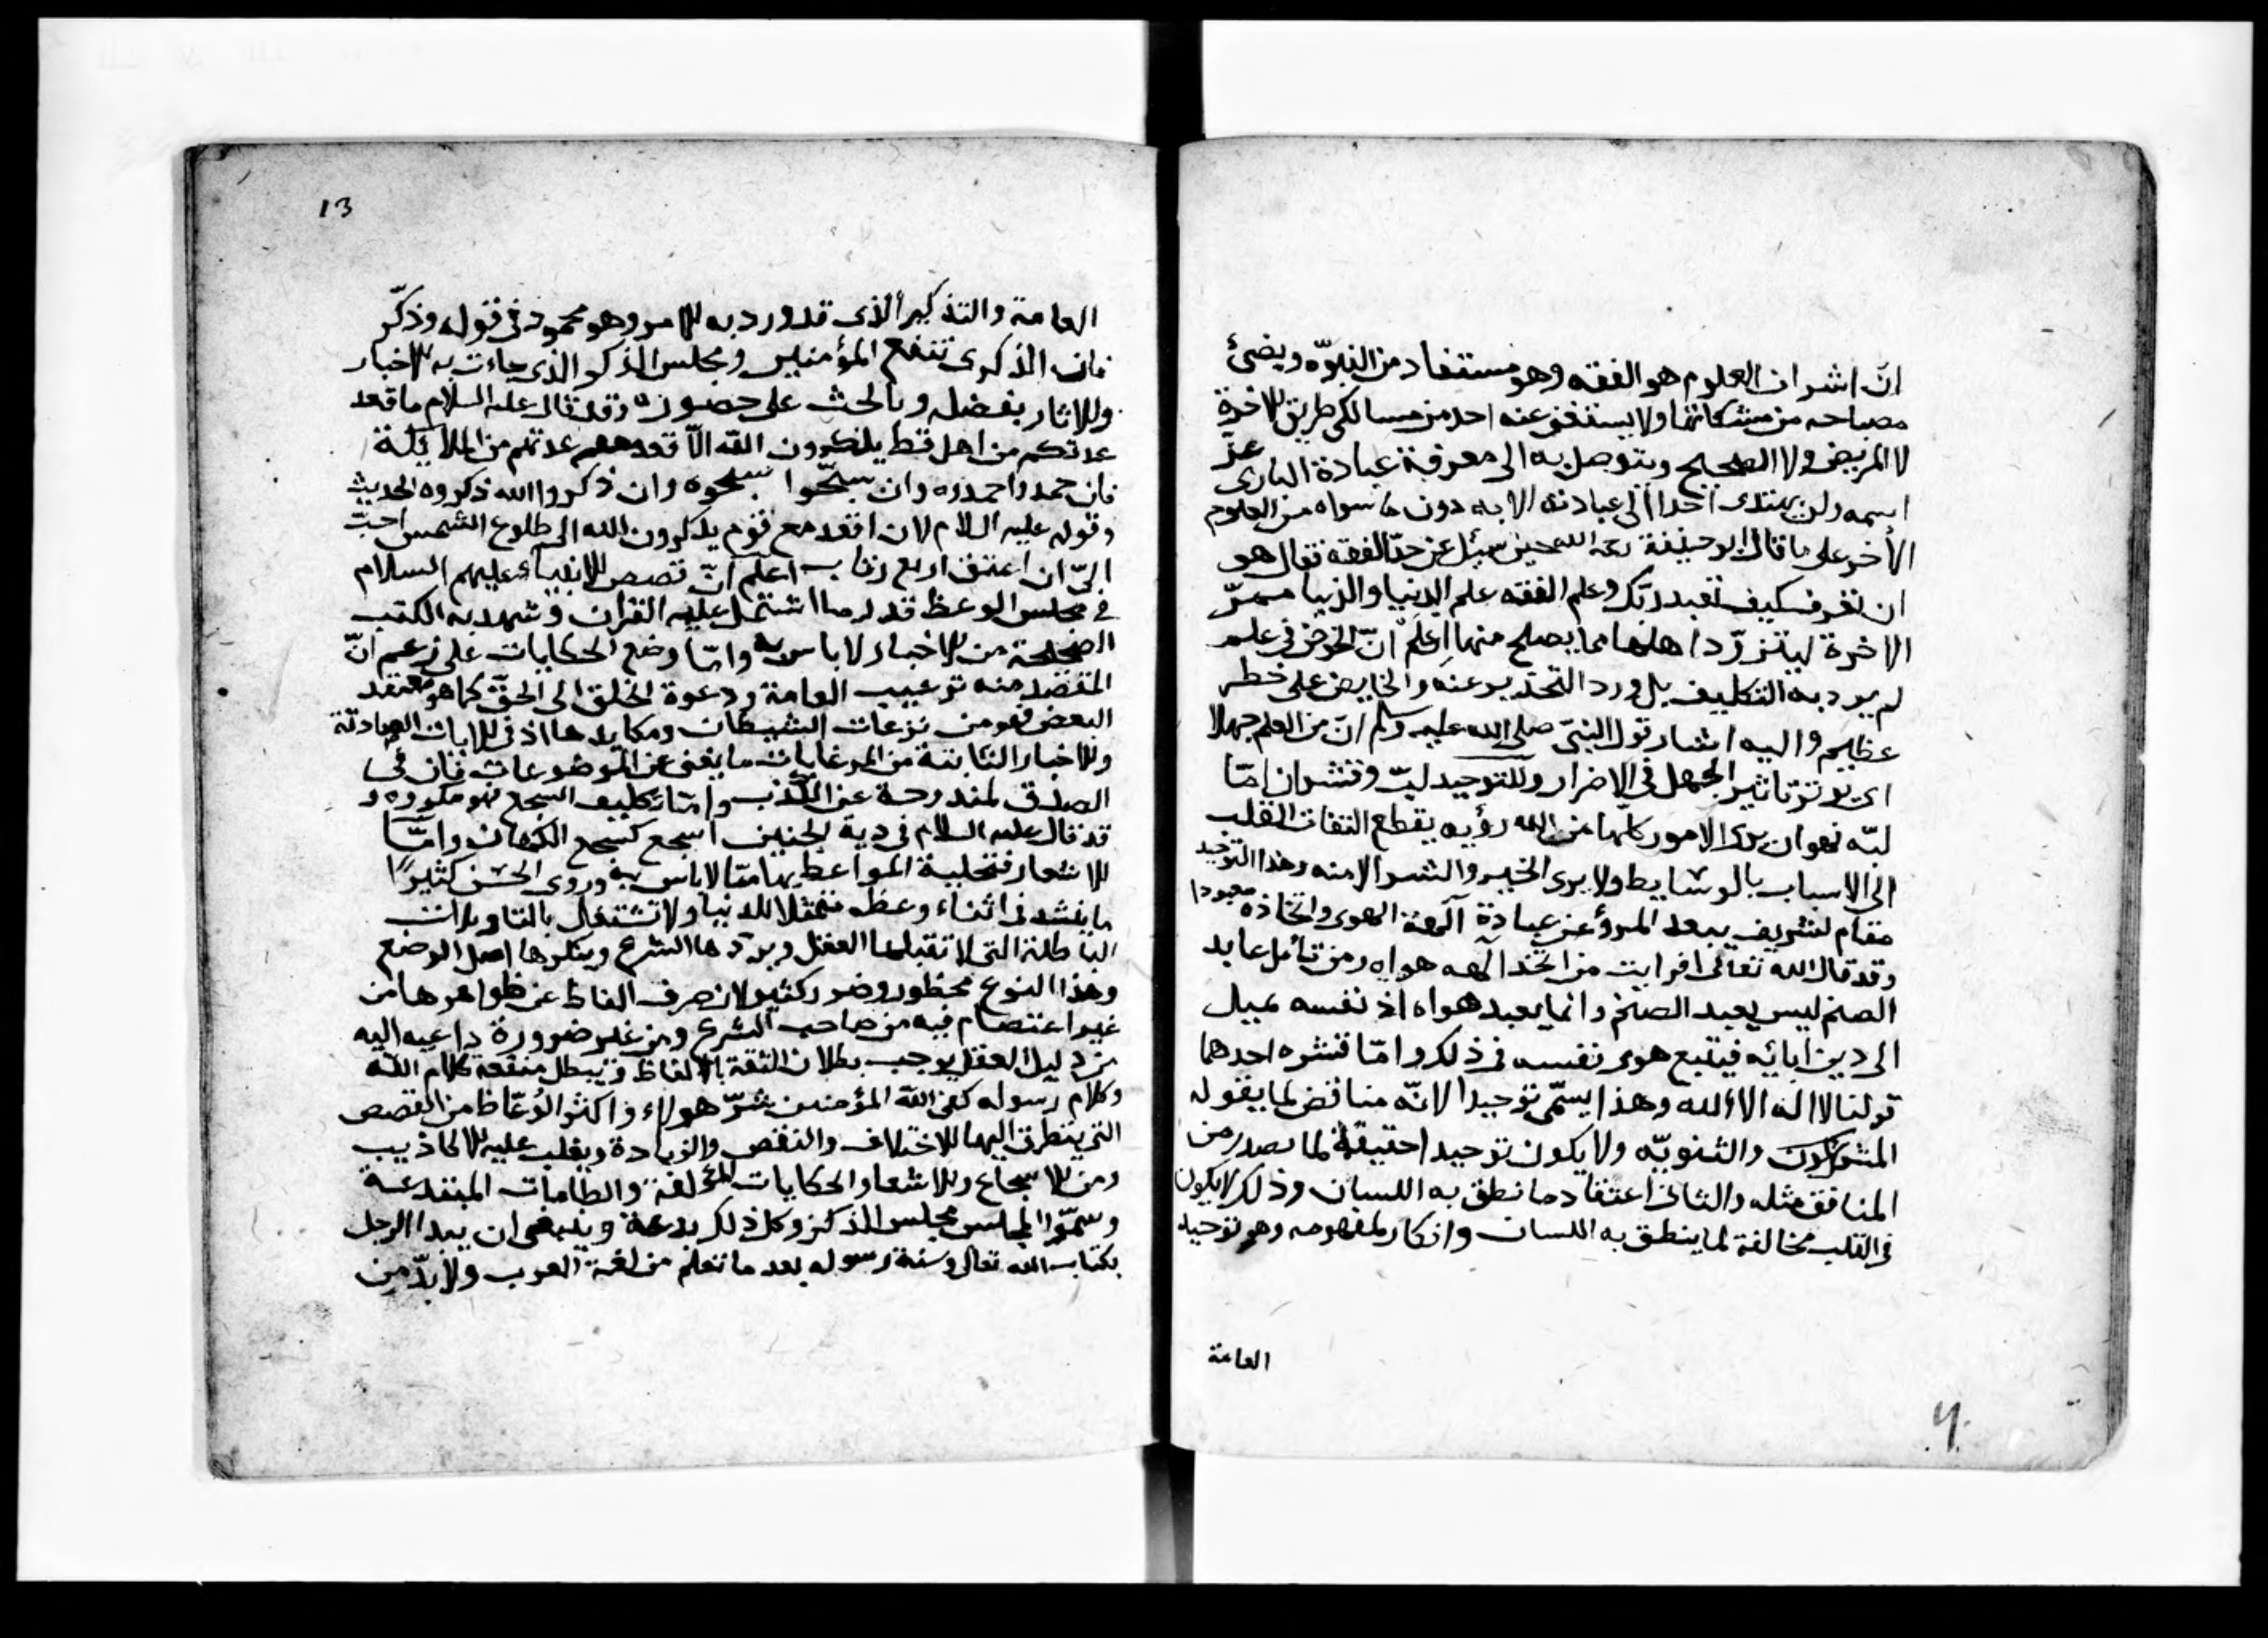 انّ اشراف العلوم هو الفقه وهو مستفاد من النبوّه ويضئ
مصباحه من مشكاتها ولا يستغنى عنه احد من سالكى طريق الاخرة
لا المريض ولا الصحيح ويتوصل به الى معرفة عبادة البارى عزّ
اسمه ولن يهتدى احدا الى عبادته الا به دون ما سواه من العلوم
الأخر على ما قال ابو حنيفة رحمه الله حين سئل عن حدّ الفقه فقال هو
ان تعرف كيف تعبد ربّك وعلم الفقه علم الدنيا والدنيا ممرّ
الاخرة ليتزوّد اهلها مما يصلح منها اعلم انّ الخوض فى علم
لم يرد به التكليف بل ورد التحذير عنه والخايض على خطر
عظيم واليه اشار قول النبىّ صلى الله عليه وسلم انّ من العلم جهلا
اى يوثر تاثير الجهل فى الاضرار وللتوحيد لبّ وقشران امّا
لبّه فهو ان يرى الامور كلّها من الله رؤيه يقطع التفات القلب
الى الاسباب بالوسايط ولا يرى الخير والشر الا منه وهذا التوحيد
مقام لشريف يبعد المرؤ عن عبادة آلهة الهوى واتخاذه معبودا
وقد قال الله تعالى افرايت من اتخذ آلهه هواه ومن تأمل عابد
الصنم ليس يعبد الصنم وانما يعبد هواه اذ نفسه يميل
الى دين ابائه فيتبع هوى نفسه فى ذلك وامّا قشره احدهما
قولنا لا اله الا الله وهذا يسمّى توحيدا لانّه مناقض لما يقوله
المشركون والثنويّه ولا يكون توحيدا حقيقة لما يصدر من
المنافق مثله والثانى اعتقاد ما نطق به اللسان وذلك لا يكون
فى القلب مخالفة لما ينطق به اللسان وانكار لمفهومه وهو توحيد
العامة
13
العامة والتذكير الذى قد ورد به الامر وهو محمود فى قوله وذكّر
فان الذكرى تنفع المؤمنين ومجلس الذكر الذى جاءت به الاخبار
والاثار بفضله وبالحث على حضوره وقد قال عليه السلام ما قعد
عدتكم من اهل قط يذكرون الله الّا قعد معهم عدتهم من الملائكة
فان حمد واحمدوه وان سبّحوا سبحوه وان ذكروا الله ذكروه الحديث
وقوله عليه السلام لان اقعد مع قوم يذكرون الله الى طلوع الشمس احبّ
الىّ ان اعتق اربع رقاب اعلم انّ قصص الانبياء عليهم السلام
فى مجلس الوعظ قدر ما اشتمل عليه القران وشهد به الكتب
الصحيحة من الاخبار لا باس به وامّا وضع الحكايات على زعم انّ
المقصد منه ترغيب العامة ودعوة الخلق الى الحقّ كما هو معتقد
البعض فهو من نزعات الشيطان ومكايدها اذ فى الايات الصادقة
والاخبار الثابتة من المرغابات ما يغنى عن الموضوعات فان فى
الصدق لمندوحة عن الكذب وامّا تكليف السجع فهو مكروه و
قد قال عليه السلام فى دية الجنين اسجع كسجع الكهان وامّا
الاشعار فتحلية المواعظ بها ممّا لا باس به وروى الحسن كثيرًا
ما ينشد فى اثناء وعظه متمثلا للدنيا ولا تشتغال بالتاويلات
الباطلة التى لا تقبلها العقل ويردّها الشرع وينكرها اصل الوضع
وهذا النوع محظور وضرر كثير لان صرف الفاظ عن ظواهرها من
غير اعتصام فيه من صاحب الشرع ومن غير ضرورة داعيه اليه
من دليل العقل يوجب بطلان الثقة بالالفاظ ويبطل منفعة كلام الله
وكلام رسوله كفى الله المؤمنين شرّ هولاء واكثر الوعّاظ من القصص
التى يتطرق اليها الاختلاف والنقص والزيادة ويغلب عليه الاكاذيب
ومن الاسجاع والاشعار والحكايات المؤلفة والطامات المبتدعة
وسمّوا المجلس مجلس الذكر وكل ذلك بدعة وينبغى ان يبدا الرجل
بكتاب الله تعالى وسنة رسوله بعد ما تعلم من لغة العرب ولا بدّ من